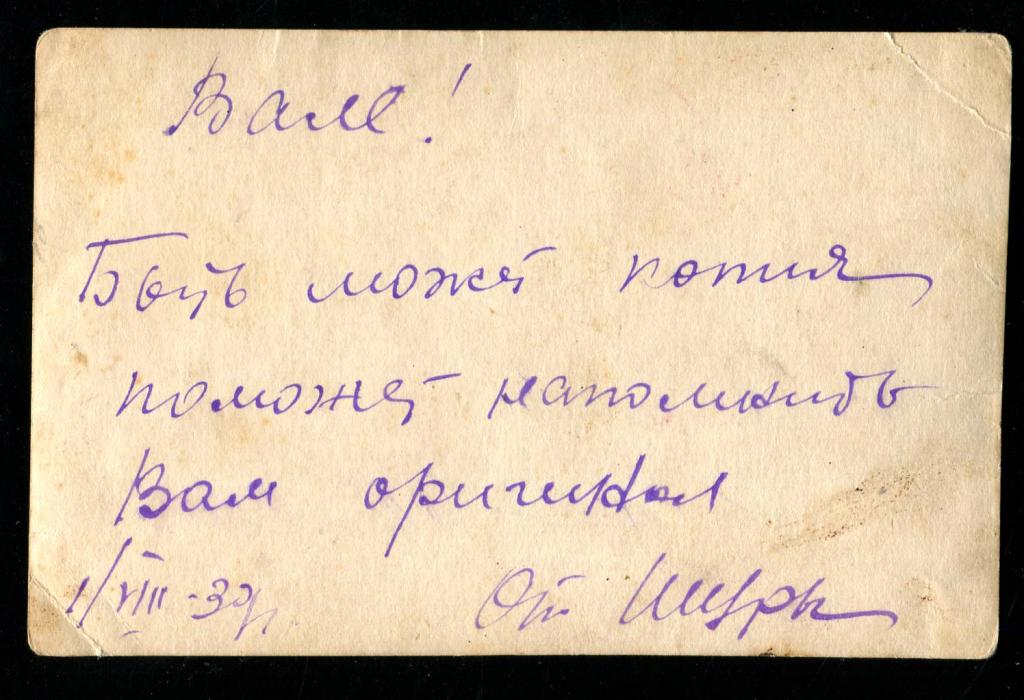 Вале!
Быть может копия
поможет напомнить
Вам оригинал
1/VIII-39г. От Шуры